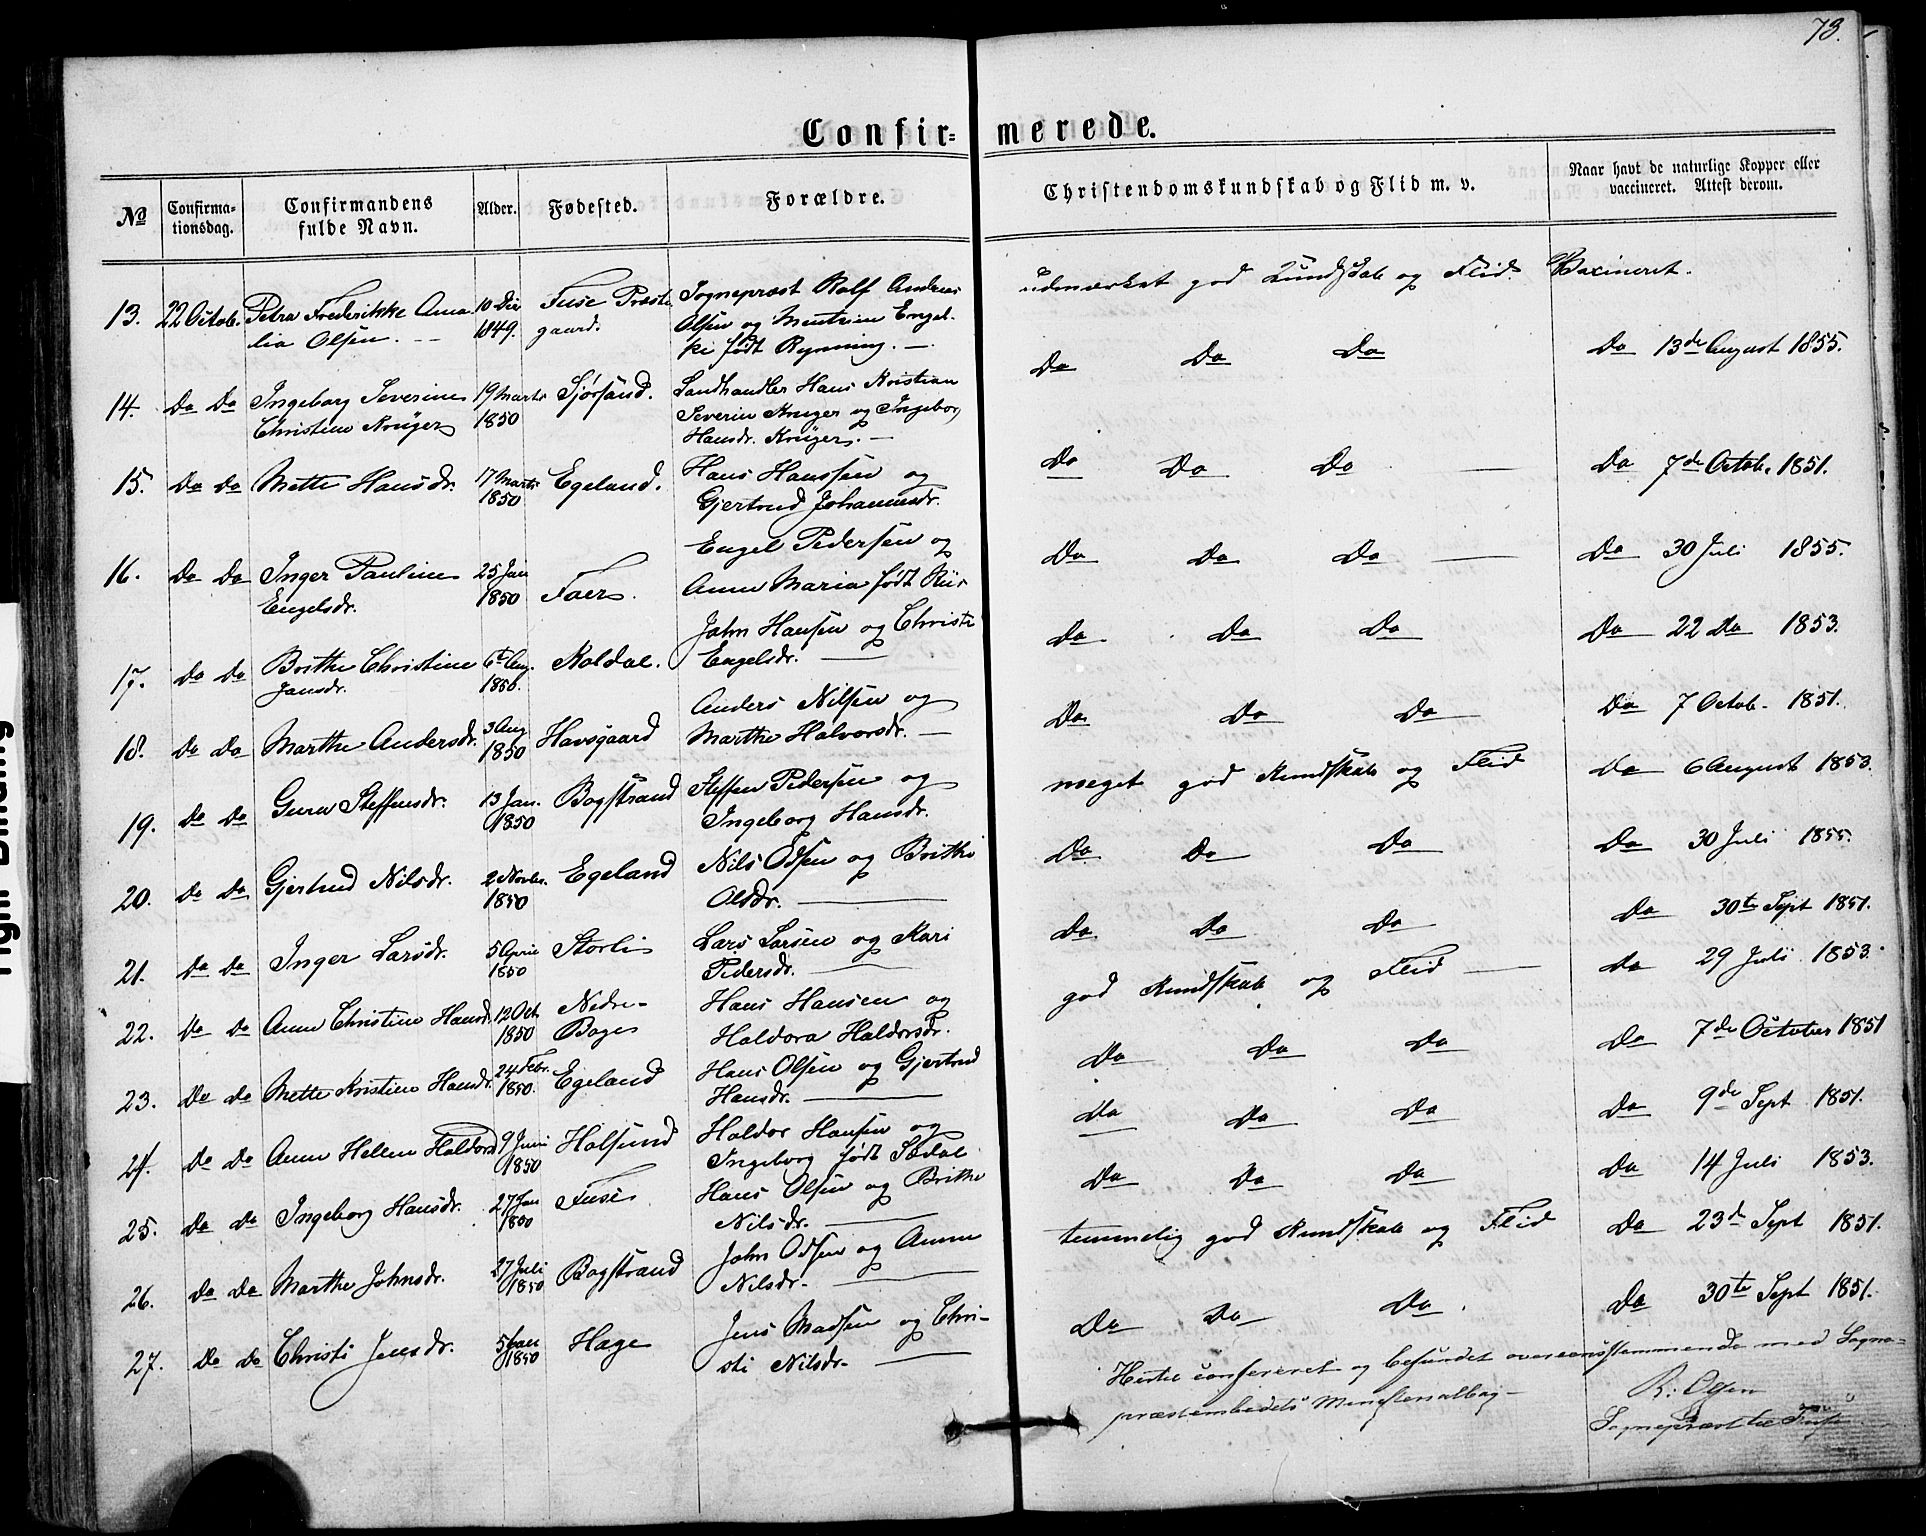 73.
Confir- merede.
No Confirma-tionsdag. Confirmandens fulde Navn. Alder. Fødested. Forældre. Christendomskundskab og Flid m. v. Naar havt de naturlige Kopper eller vaccineret. Attest derom.
13. 22 Octob. Petra Frederikke Ama- 10 Dec Fuse Præste- Sognepræst Rolf Andreas udmærket god Kundskab og Flid Vaxineret.
lia Olsen. 1849. gaard. Olsen og
født Rynning. Do Do Do Do 13de August 1855.
14. Do Do Ingeborg Severine 19 Marts Sjørsand. Landhandler Hans Kristian
Christine Krüger 1850 Severin Kruger og Ingeborg
Hansdr. Krüger. Do Do Do Do 7de Octob. 1851.
15. Do Do Mette Hansdr. 17 Marts Egeland. Hans Hanssen og
1850 Gjertrud Johannesdr.
Engel Pedersen og Do Do Do Do 30 Juli 1855.
16. Do Do Inger Pauline 25 Jan Faer Anne Maria født Riis
Engelsdr. 1850
John Hansen og Christi Do Do Do Do 22 Do 1853.
17. Do Do Brithe Christine 6te Aug. Koldal. Engelsdr.
Jansdr. 1850.
Anders Nilsen og Do Do Do Do 7 Octob. 1851.
18. Do Do Marthe Andersdr. 3 Aug 1850 Havsgaard Marthe Halvorsdr.
19. Do Do Guru Steffensdr. 13 Jan. Bogstrand Steffen Pedersen og meget god Kundskab og Flid Do 6 August 1853.
1850 Ingeborg Hansdr.
20. Do Do Gjertrud Nilsdr. 2 Novbr. Egeland Nils Odsen og Brithe Do Do Do Do 30 Juli 1855.
1850 Olsdr.
21. Do Do Inger Larsdr. 5 April Storli Lars Larsen og Kari Do Do Do Do 30te Sept 1851.
1850 Pedersdr.
22. Do Do Anne Christine Hansd. 12 Oct Nedre- Hans Hansen og god Kundskab og Flid Do 29 Juli 1853.
1850 Boge Haldora Haldorsdr.
23. Do Do Mette Kristine Hansdr. 24 Febr. Egeland Hans Olsen og Gjertrud Do Do Do Do 7de October 1851
1850. Hansdr.
24. Do Do Anne Helene Haldorsd 9 Juni Holsund Haldor Hansen og Do Do Do Do 9de Sept 1851.
1850 Ingeborg født Sædal
25. Do Do Ingeborg Hansdr. 27 Jan Fuse Hans Olsen og Brithe Do Do Do Do 14 Juli 1853.
1850 Nilsdr.
26. Do Do Marthe Johnsdr. 27 Juli Bogstrand John Odsen og Anne temmelig god Kundskab og Flid Do 23de Sept 1851.
1850 Nilsdr.
27. Do Do Christi Jensdr. 5 Jan Hage Jens Madsen og Chri- Do Do Do Do 30te Sept 1851.
1850 sti Nilsdr.
Hertil confereret og befundet overeensstemmende med Sogne-
præstembedets Ministerialbog
R: Olsen
Sognepræst til Fuse